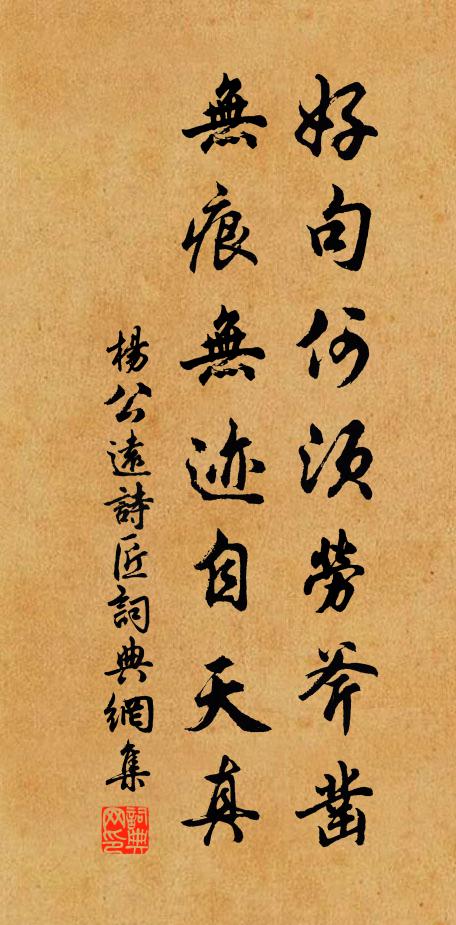 好句何須勞斧凿
無痕無迹自天真
楊公遠詩匠詞典網集
詞典网印